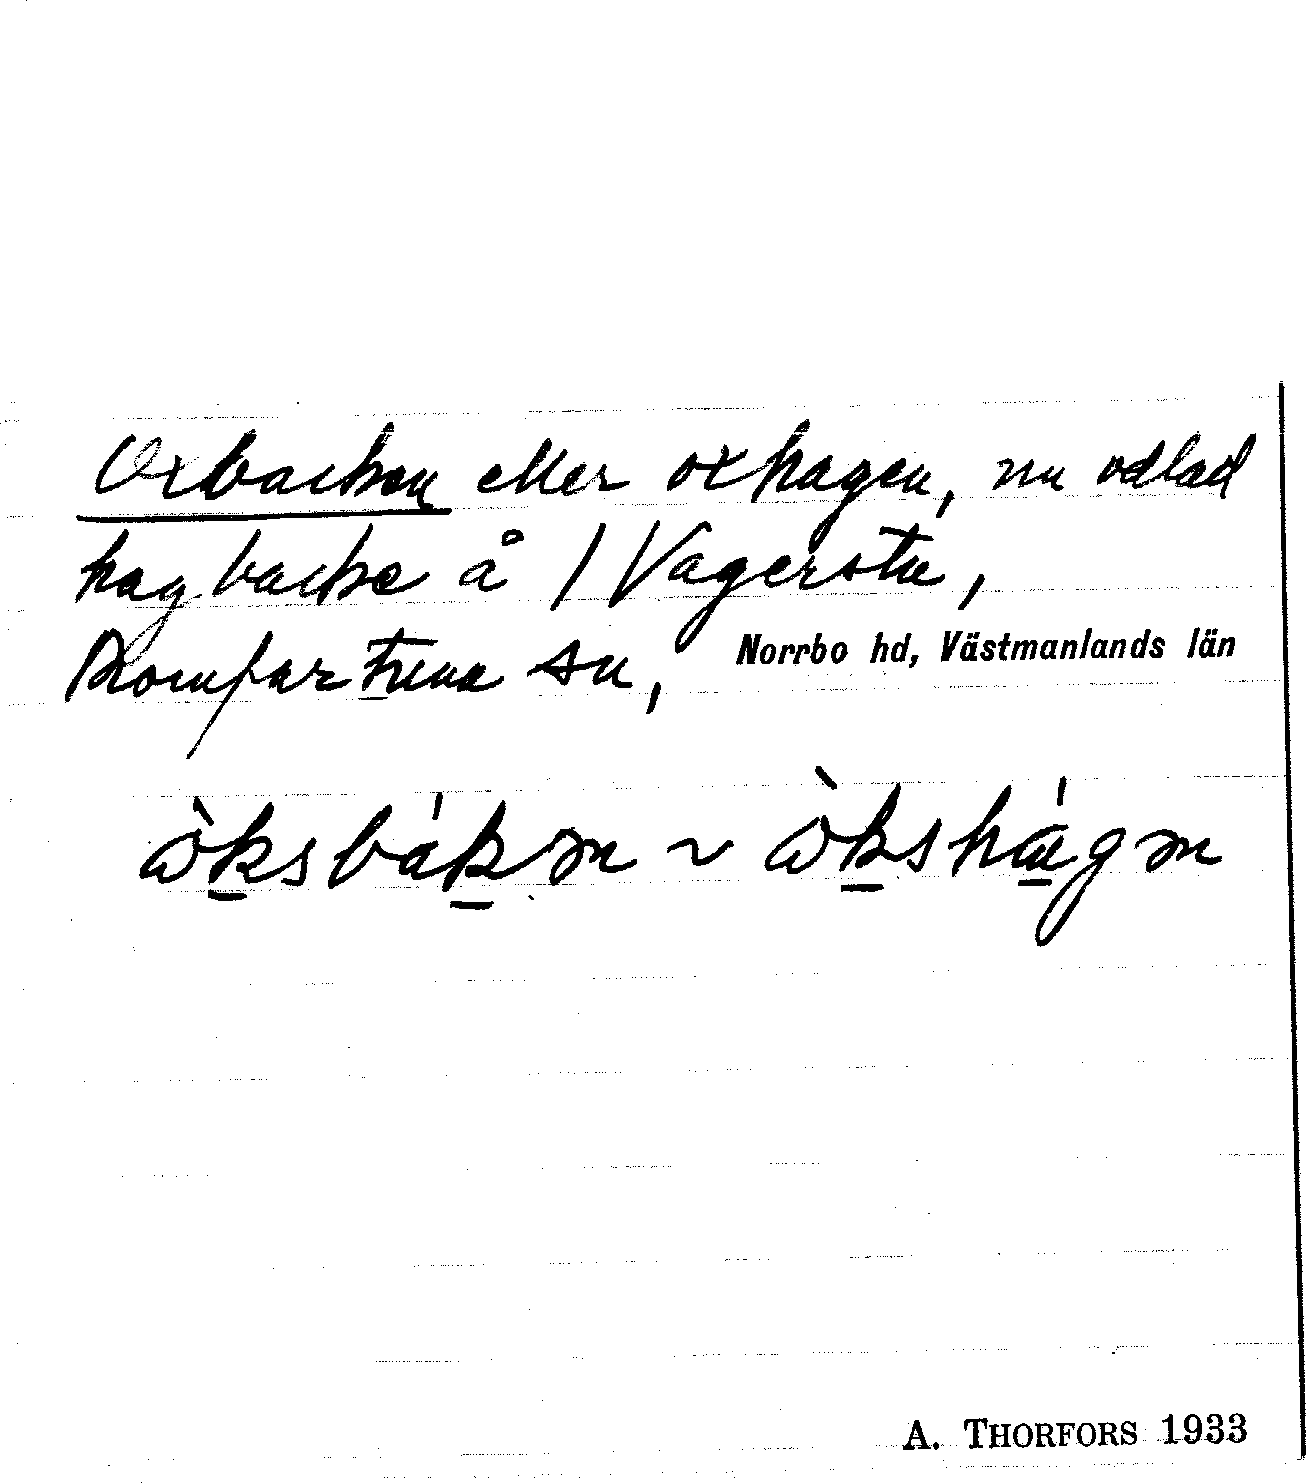 Oxbacken eller oxhagen, nu odlad
hagbacke å / Vagersta,
Romfartuna sn, Norrbo hd, Västmanlands län
ὼksbákən ~ ὼkshágən
A. THORFORS 1933